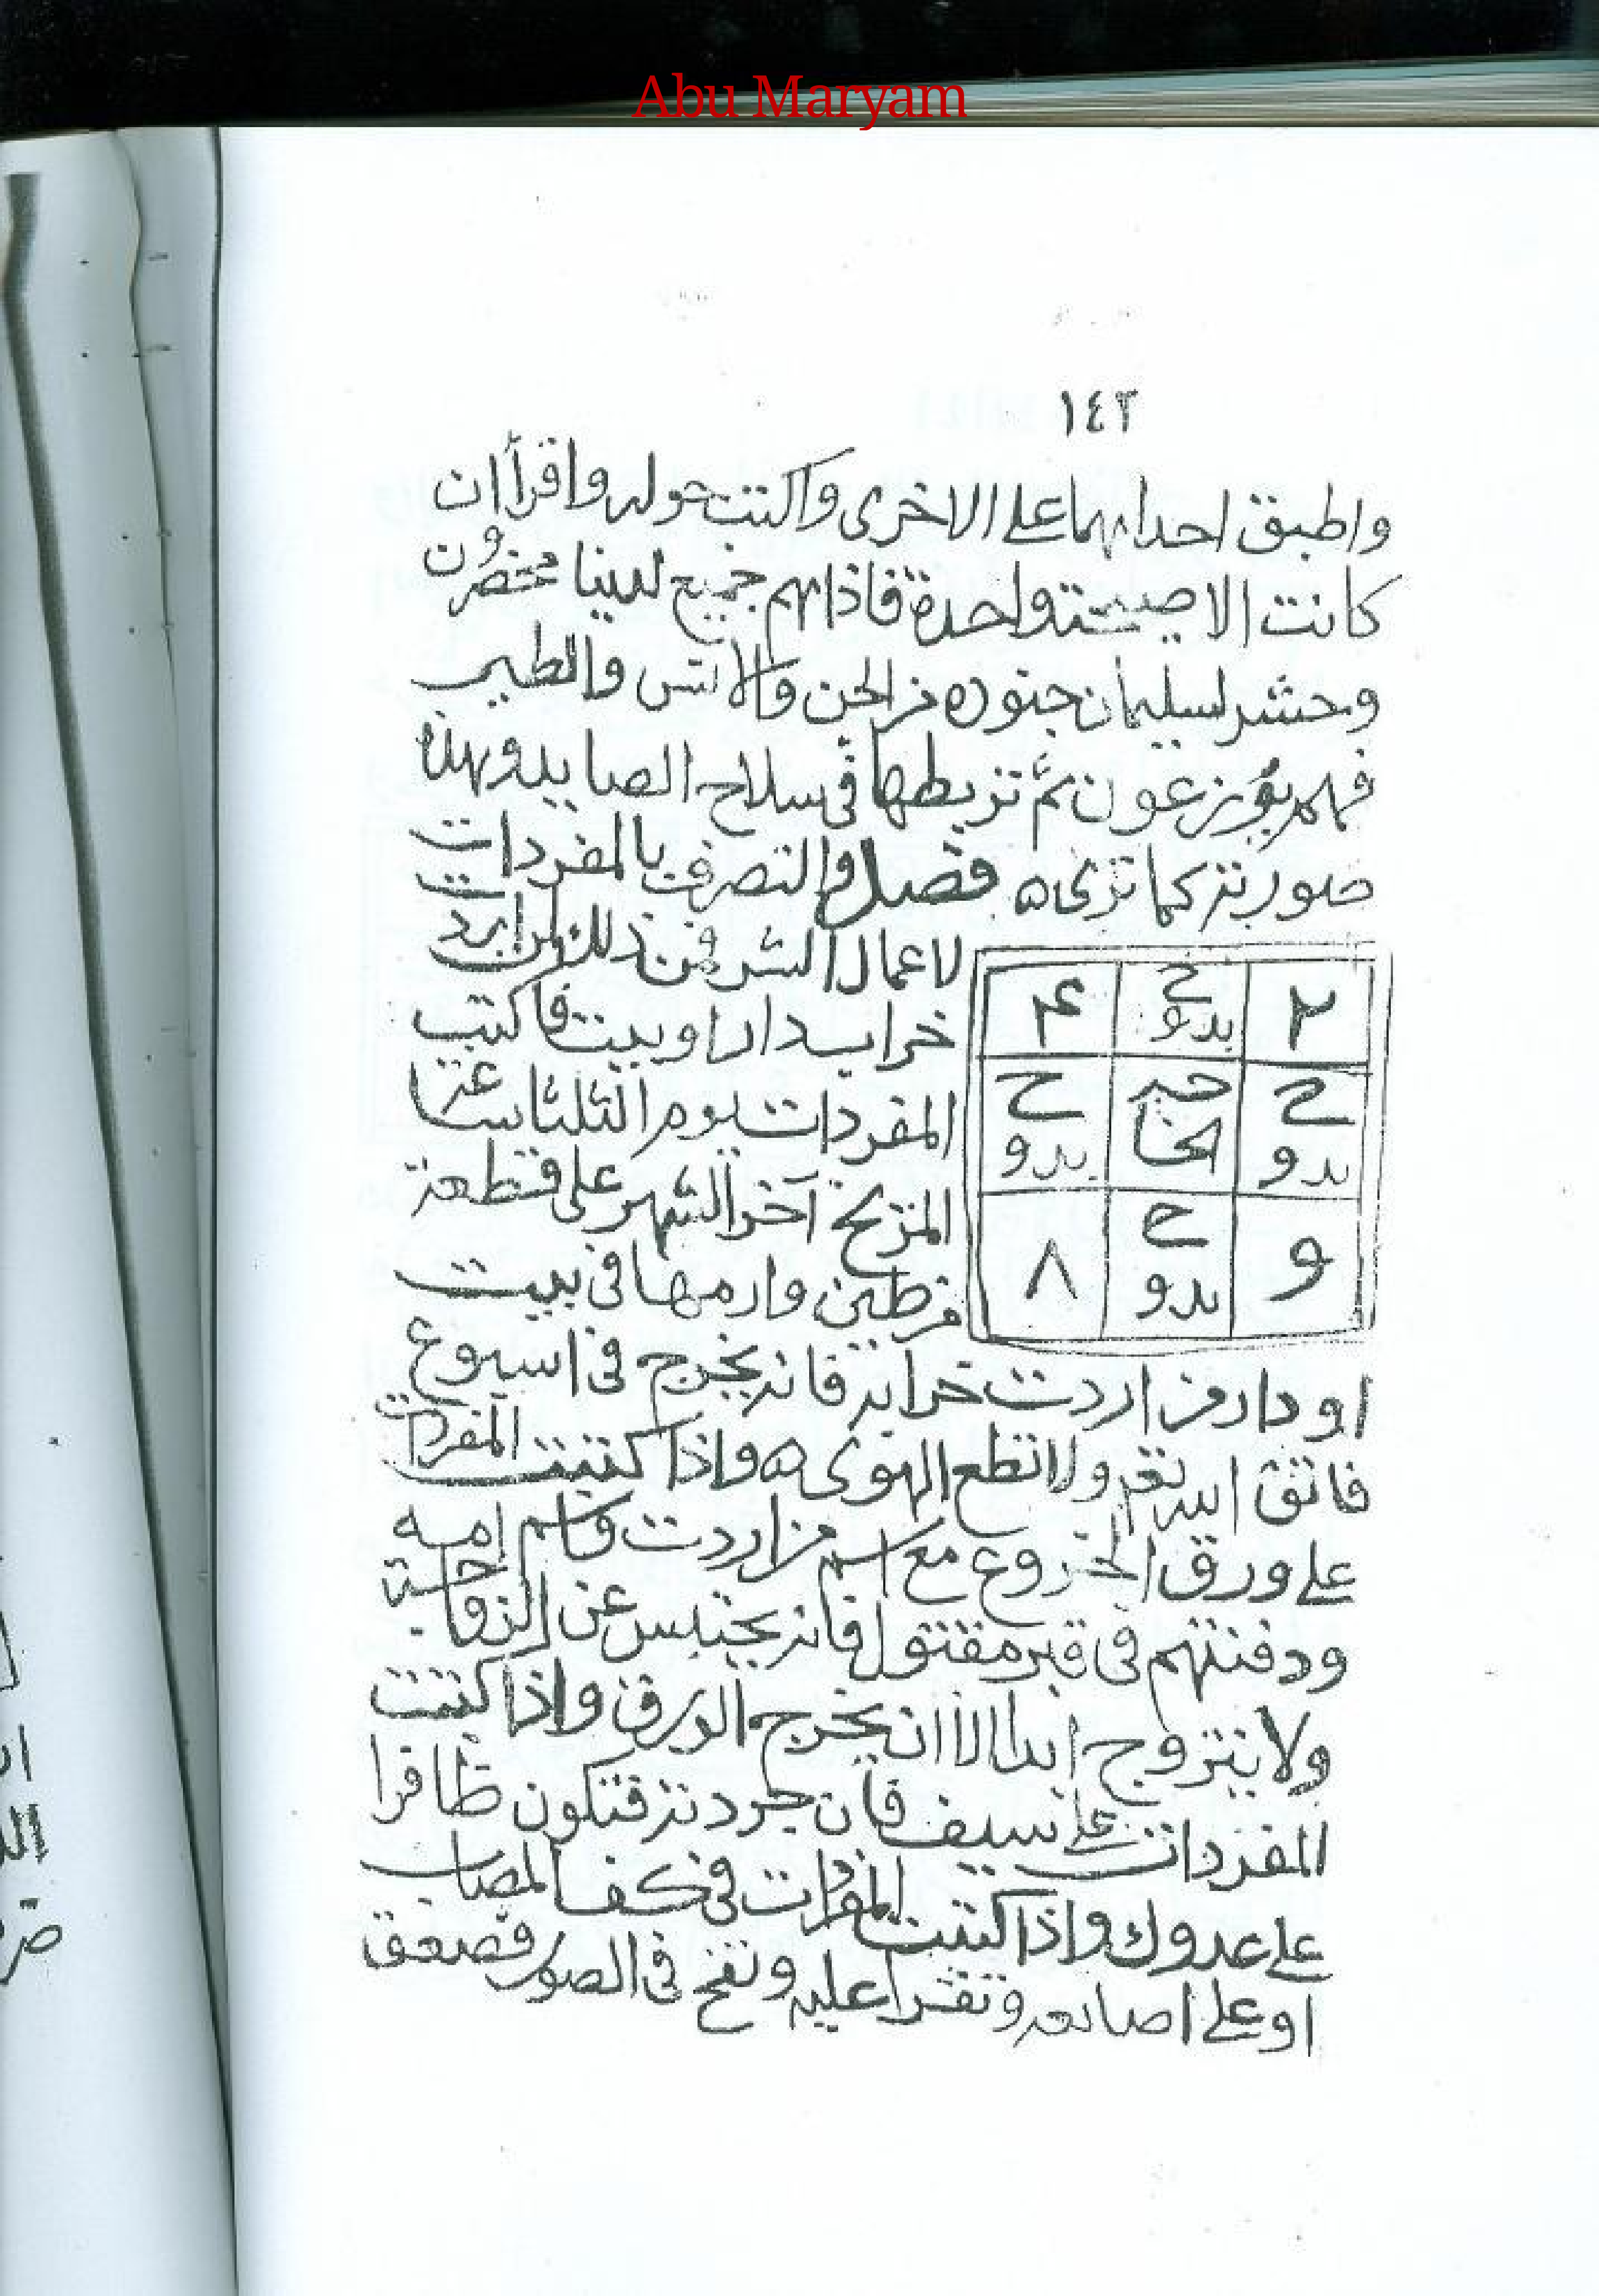 Abu Maryam
١٤٢
واطبق احداهما على الاخرى واكتب حوله واقرأ ان
كانت الا صيحة واحدة فاذا هم جميع لدينا محضرون
وحشر لسليمان جنوده من الجن والانس والطير
فهم يوزعون ثم تربطها في سلاح الصايد وهذه
صورته كما ترى ه فصل والتصرف بالمفردات
لاعمال الشر فمن ذلك لمن اردت
خراب دار او بيت فاكتب
المفردات يوم الثلثا ساعة
المريخ آخر الشهر على قطعة
من طين وارمها في بيت
٢ ح بدو ٤
ح بدو الحا ح بدو
و ح بدو ٨
او دار من اردت خرابه فانه يخرج في اسبوع
فاتق الله تعم ولا تطع الهوى ه واذا كتبت المفردات
على ورق الخروع مع اسم من اردت واسم امه
ودفنتهم في قبر مقتول فانه يحتبس عن الزواج
ولا يتزوج ابدا الا ان يخرج الورق واذا كتبت
المفردات على سيف فان جردته فتكون ظافرا
على عدوك واذا كتبت المفردات في كف المصاب
او على اصابعه وتقرأ عليه ونفخ في الصور فصعق